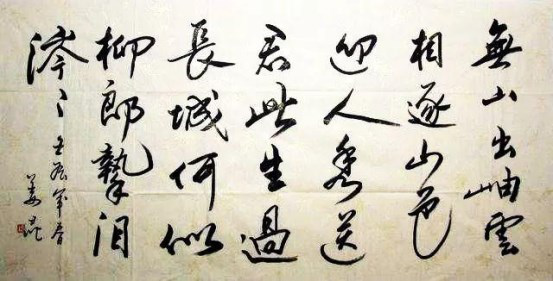 無山出岫雲
相逐山色
迎人秀送
君此生過
長城何似
柳郎摯泪
涔〻
壬辰年春
姜昆